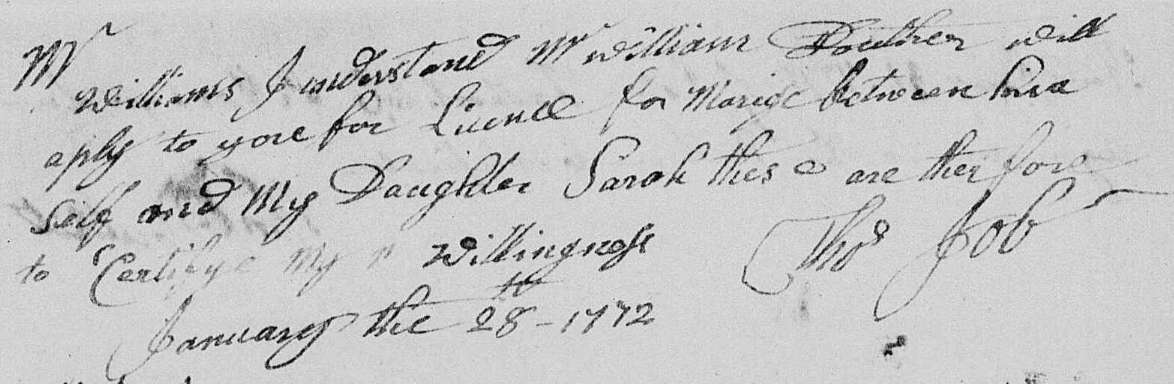 Mr
Williams I understand Mr William Douther will
aply to youe for Licence for Marige between him
self and My Daughter Sarah thes e are ther fore
to Certifye My Willingness Thos Job
January the 28th - 1772